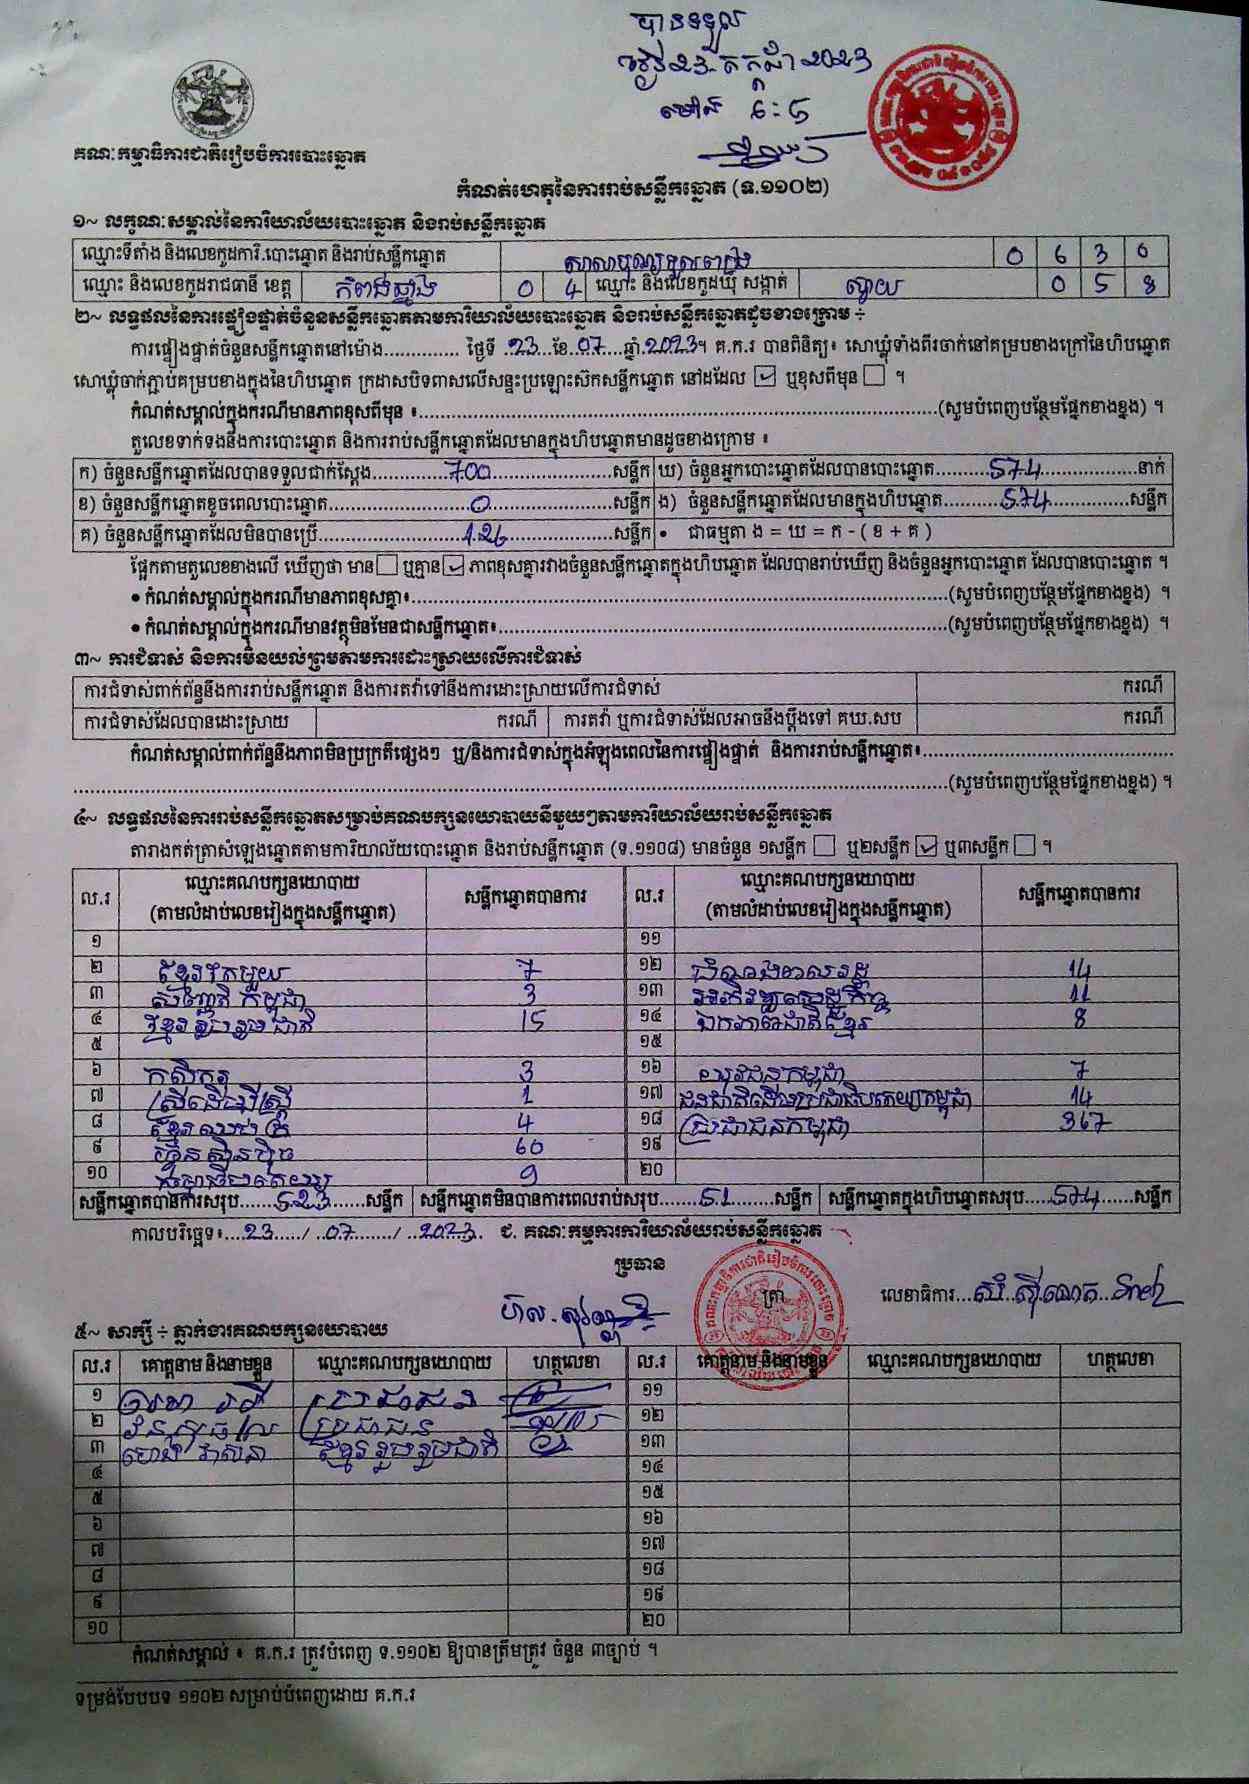 បានទទួល
ថ្ងៃ២៣ កក្កដា ២០២៣
ម៉ោង ៦:៤
គណៈកម្មាធិការជាតិរៀបចំការបោះឆ្នោត
កំណត់ហេតុនៃការរាប់សន្លឹកឆ្នោត (ទ.១១០២)
១~ លក្ខណៈសម្គាល់នៃការិយាល័យបោះឆ្នោត និងរាប់សន្លឹកឆ្នោត
ឈ្មោះទីតាំង និងលេខកូដការិ.បោះឆ្នោត និងរាប់សន្លឹកឆ្នោត 0 6 3 0
ឈ្មោះ និងលេខកូដរាជធានី ខេត្ត កំពង់ឆ្នាំង 0 4 ឈ្មោះ និងលេខកូដឃុំ សង្កាត់ ស្វាយ 0 5 8
២~ លទ្ធផលនៃការផ្ទៀងផ្ទាត់ចំនួនសន្លឹកឆ្នោតតាមការិយាល័យបោះឆ្នោត និងរាប់សន្លឹកឆ្នោតដូចខាងក្រោម ÷
ការផ្ទៀងផ្ទាត់ចំនួនសន្លឹកឆ្នោតនៅម៉ោង.............. ថ្ងៃទី ..23...ខែ..07....ឆ្នាំ.2023។ គ.ក.រ បានពិនិត្យ៖ សោឃ្លុំទាំងពីរចាក់នៅគម្របខាងក្រៅនៃហិបឆ្នោត
សោឃ្លុំចាក់ភ្ជាប់គម្របខាងក្នុងនៃហិបឆ្នោត ក្រដាសបិទពាសលើសន្ទះប្រឡោះស៊កសន្លឹកឆ្នោត នៅដដែល ☑ ឬខុសពីមុន ☐ ។
កំណត់សម្គាល់ក្នុងករណីមានភាពខុសពីមុន ៖..............................(សូមបំពេញបន្ថែមផ្នែកខាងខ្នង) ។
តួលេខទាក់ទងនឹងការបោះឆ្នោត និងការរាប់សន្លឹកឆ្នោតដែលមានក្នុងហិបឆ្នោតមានដូចខាងក្រោម ៖
ក) ចំនួនសន្លឹកឆ្នោតដែលបានទទួលជាក់ស្តែង..............700..............សន្លឹក ឃ) ចំនួនអ្នកបោះឆ្នោតដែលបានបោះឆ្នោត..........574..........នាក់
ខ) ចំនួនសន្លឹកឆ្នោតខូចពេលបោះឆ្នោត..............0..............សន្លឹក ង) ចំនួនសន្លឹកឆ្នោតដែលមានក្នុងហិបឆ្នោត..........574..........សន្លឹក
គ) ចំនួនសន្លឹកឆ្នោតដែលមិនបានប្រើ..............126..............សន្លឹក • ជាធម្មតា ង = ឃ = ក - ( ខ + គ )
ផ្អែកតាមតួលេខខាងលើ ឃើញថា មាន ☐ ឬគ្មាន ☑ ភាពខុសគ្នារវាងចំនួនសន្លឹកឆ្នោតក្នុងហិបឆ្នោត ដែលបានរាប់ឃើញ និងចំនួនអ្នកបោះឆ្នោត ដែលបានបោះឆ្នោត ។
• កំណត់សម្គាល់ក្នុងករណីមានភាពខុសគ្នា៖..............................(សូមបំពេញបន្ថែមផ្នែកខាងខ្នង) ។
• កំណត់សម្គាល់ក្នុងករណីមានវត្ថុមិនមែនជាសន្លឹកឆ្នោត៖..............................(សូមបំពេញបន្ថែមផ្នែកខាងខ្នង) ។
៣~ ការជំទាស់ និងការមិនយល់ព្រមតាមការដោះស្រាយលើការជំទាស់
ការជំទាស់ពាក់ព័ន្ធនឹងការរាប់សន្លឹកឆ្នោត និងការតវ៉ាទៅនឹងការដោះស្រាយលើការជំទាស់ ករណី
ការជំទាស់ដែលបានដោះស្រាយ ករណី ការតវ៉ា ឬការជំទាស់ដែលអាចនឹងប្តឹងទៅ គឃ.សប ករណី
កំណត់សម្គាល់ពាក់ព័ន្ធនឹងភាពមិនប្រក្រតីផ្សេងៗ ឬ/និងការជំទាស់ក្នុងអំឡុងពេលនៃការផ្ទៀងផ្ទាត់ និងការរាប់សន្លឹកឆ្នោត៖..............................
..............................(សូមបំពេញបន្ថែមផ្នែកខាងខ្នង) ។
៤~ លទ្ធផលនៃការរាប់សន្លឹកឆ្នោតសម្រាប់គណបក្សនយោបាយនីមួយៗតាមការិយាល័យរាប់សន្លឹកឆ្នោត
តារាងកត់ត្រាសំឡេងឆ្នោតតាមការិយាល័យបោះឆ្នោត និងរាប់សន្លឹកឆ្នោត (ទ.១១០៨) មានចំនួន ១សន្លឹក ☐ ឬ២សន្លឹក ☑ ឬ៣សន្លឹក ☐ ។
ល.រ ឈ្មោះគណបក្សនយោបាយ (តាមលំដាប់លេខរៀងក្នុងសន្លឹកឆ្នោត) សន្លឹកឆ្នោតបានការ ល.រ ឈ្មោះគណបក្សនយោបាយ (តាមលំដាប់លេខរៀងក្នុងសន្លឹកឆ្នោត) សន្លឹកឆ្នោតបានការ
១ ១១
២ ខ្មែរតែមួយ 7 ១២ សំណង់អាសរដ្ឋ 14
៣ សញ្ជាតិកម្ពុជា 3 ១៣ អភិវឌ្ឍសេដ្ឋកិច្ច 11
៤ ខ្មែររួបរួមជាតិ 15 ១៤ ឯកភាពជាតិខ្មែរ 8
៥ ១៥
៦ កសិករ 3 ១៦ យុវជនកម្ពុជា 7
៧ ស្ត្រីដើម្បីស្ត្រី 1 ១៧ ជនជាតិដើមប្រជាធិបតេយ្យកម្ពុជា 14
៨ ខ្មែរឈប់ក្រ 4 ១៨ ប្រជាជនកម្ពុជា 367
៩ ហ៊្វុនស៊ិនប៉ិច 60 ១៩
១០ ធម្មាធិបតេយ្យ 9 ២០
សន្លឹកឆ្នោតបានការសរុប.....523......សន្លឹក សន្លឹកឆ្នោតមិនបានការពេលរាប់សរុប......51.......សន្លឹក សន្លឹកឆ្នោតក្នុងហិបឆ្នោតសរុប.....574......សន្លឹក
កាលបរិច្ឆេទ៖...23...../...07....../...2023. ជ. គណៈកម្មការការិយាល័យរាប់សន្លឹកឆ្នោត
ប្រធាន
ត្រា
លេខាធិការ...
៥~ សាក្សី ÷ ភ្នាក់ងារគណបក្សនយោបាយ
ល.រ គោត្តនាម និងនាមខ្លួន ឈ្មោះគណបក្សនយោបាយ ហត្ថលេខា ល.រ គោត្តនាម និងនាមខ្លួន ឈ្មោះគណបក្សនយោបាយ ហត្ថលេខា
១ ប្រជាជន ១១
២ ប្រជាជន ១២
៣ ខ្មែររួបរួមជាតិ ១៣
៤ ១៤
៥ ១៥
៦ ១៦
៧ ១៧
៨ ១៨
៩ ១៩
១០ ២០
កំណត់សម្គាល់ ៖ គ.ក.រ ត្រូវបំពេញ ទ.១១០២ ឱ្យបានត្រឹមត្រូវ ចំនួន ៣ច្បាប់ ។
ទម្រង់បែបបទ ១១០២ សម្រាប់បំពេញដោយ គ.ក.រ